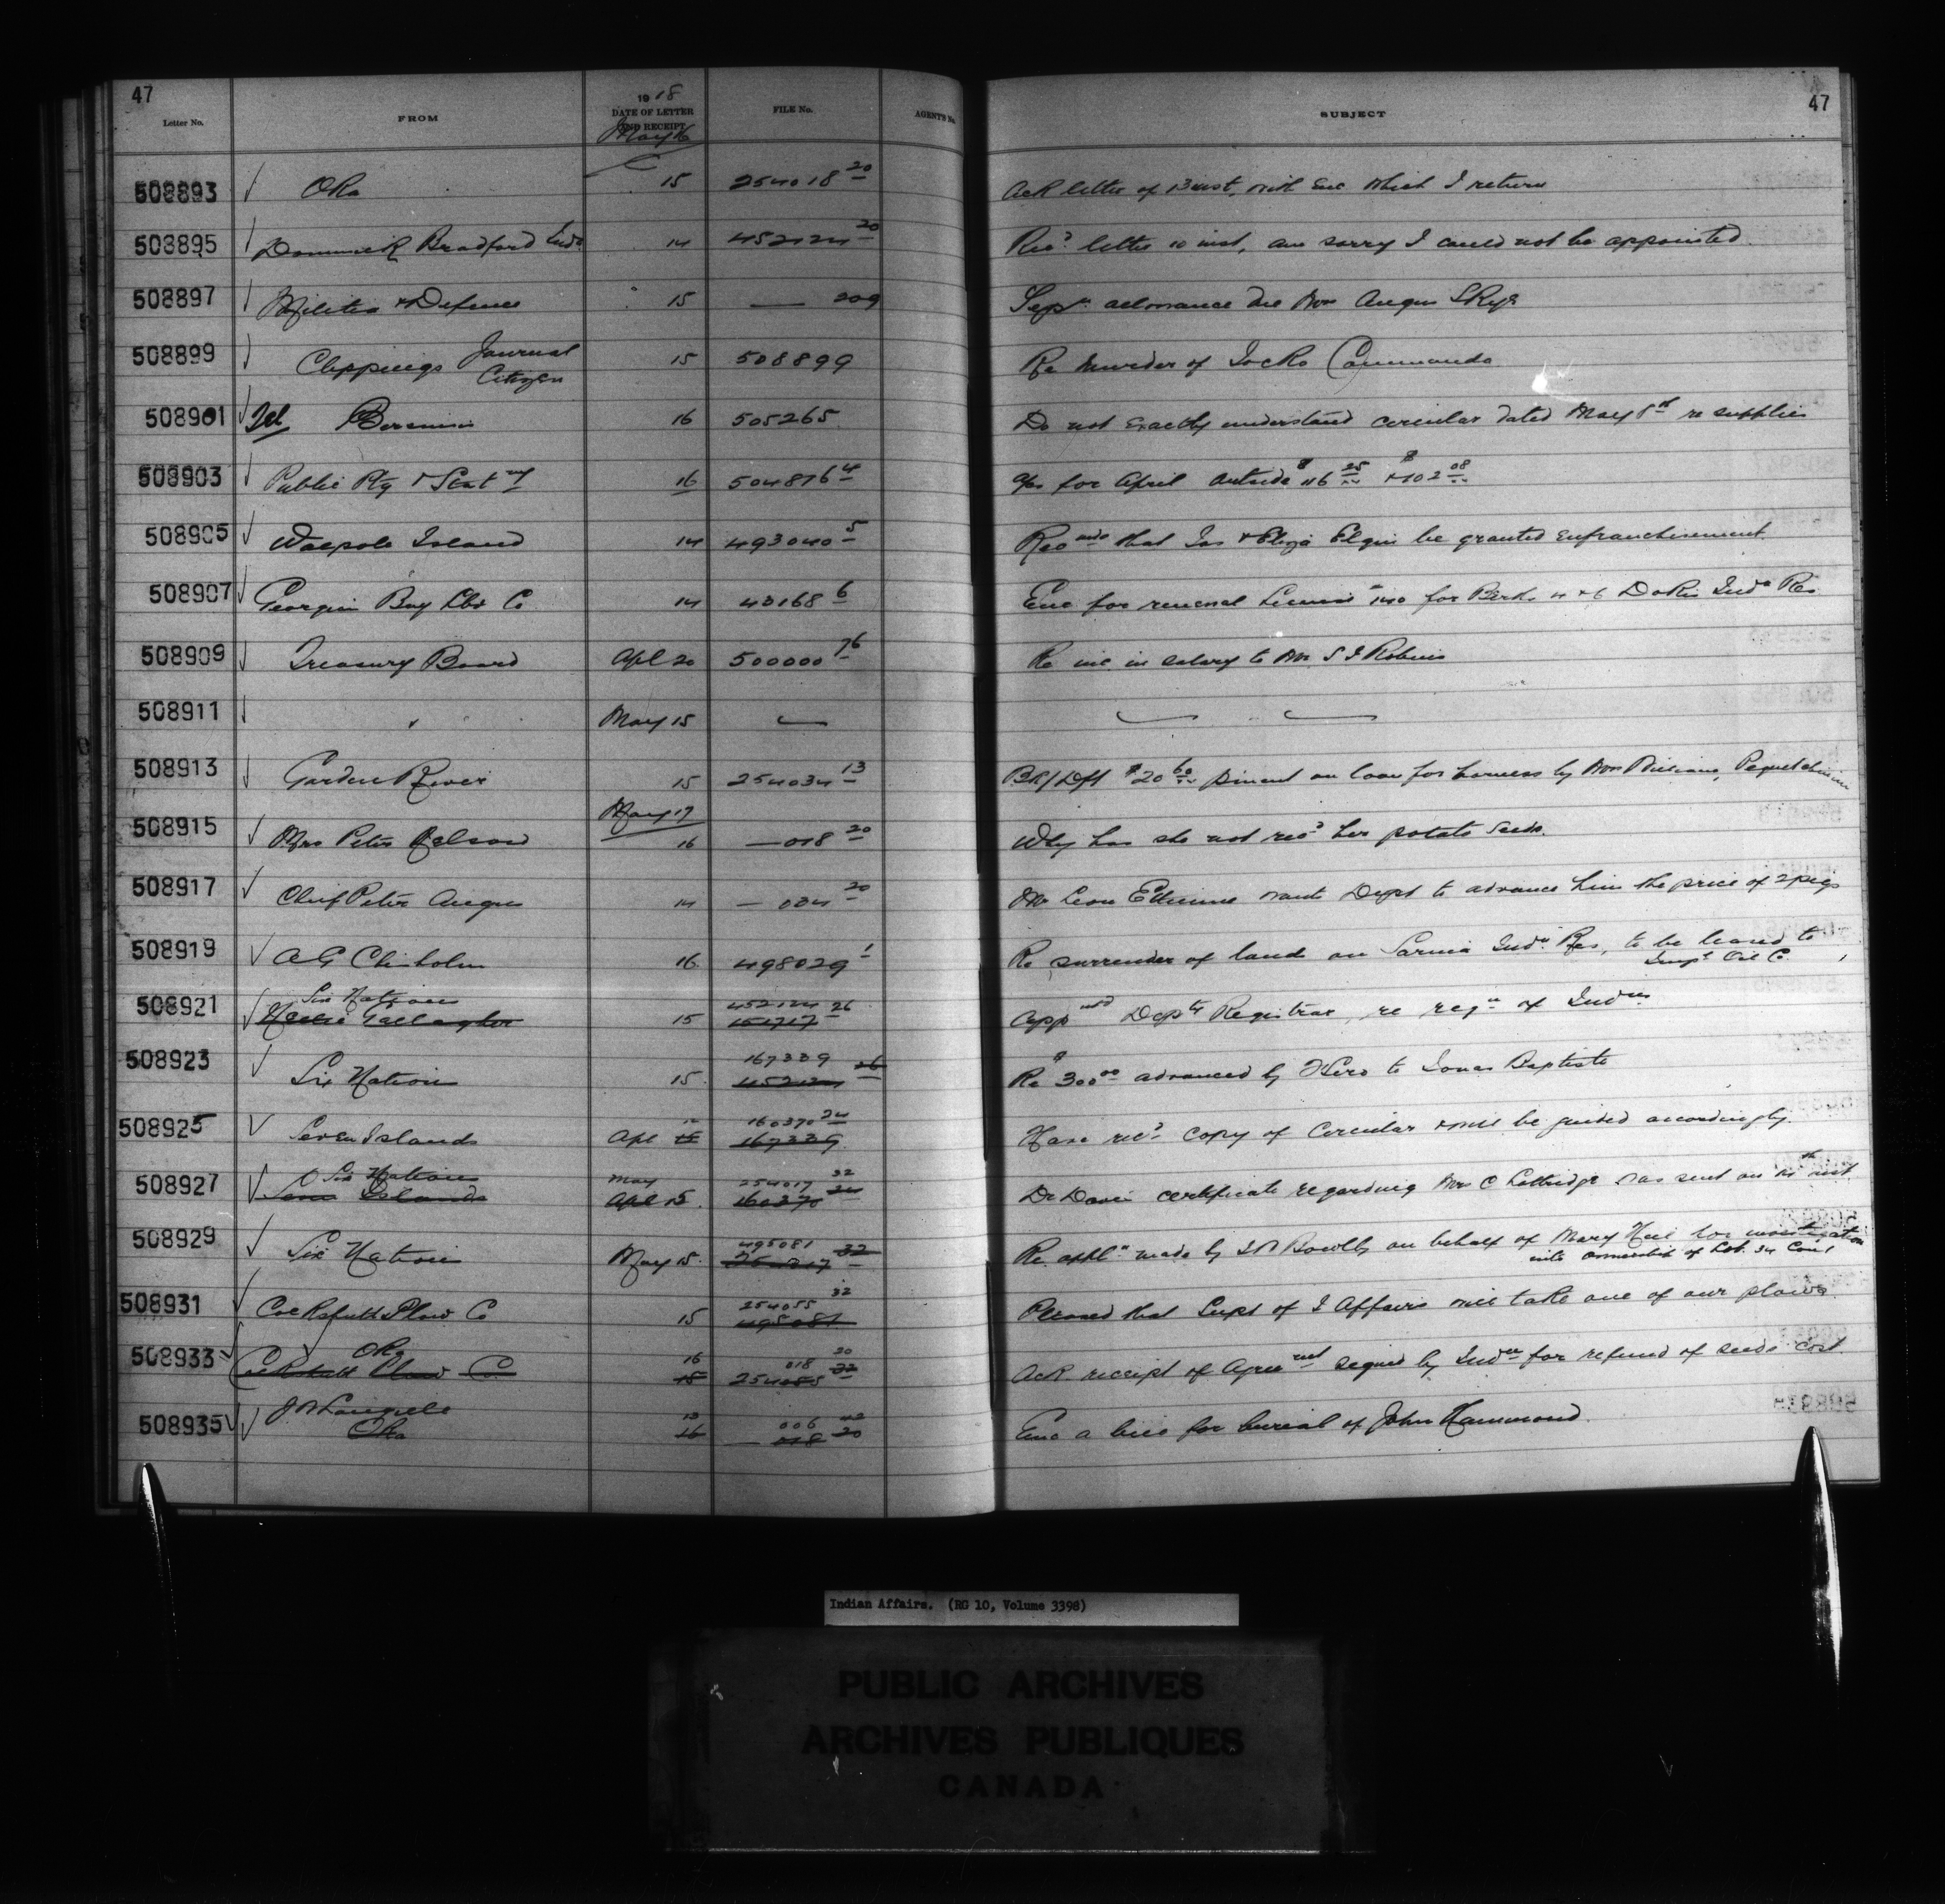 47
Letter No. FROM 1918 DATE OF LETTER AND RECEIPT FILE No. AGENT'S No. SUBJECT 47
May 16
508893 Oka 15 254018 20 Ack letter of 13 inst, with Enc which I return
508895 Dominick Bradford Ind. 14 452124 20 Recd letter 10 inst, am sorry I could not be appointed
508897 Militia & Defence 15 — 209 Sepn allowance due Mrs Angus Skye
508899 Clippings Journal Citizen 15 508899 Re Murder of Jocko Commanda
508901 Tel Bersimis 16 505265 Do not exactly understand circular dated May 8th re supplies
508903 Public Ptg & Staty 16 504876 4 a/cs for April outside $116 25 & $102 08
508905 Walpole Island 14 493040 5 Recmds that Jas & Eliza Elgin be granted enfranchisement
508907 Georgian Bay Lbr Co 14 43168 6 Enc for renewal License 140 for Berths 4 & 6 Dokis Indn Res
508909 Treasury Board Apl 20 500000 76 Re inc. in salary to Mr S J Robins
508911 " May 15 — — —
508913 Garden River 15 254034 13 Bk/Dft $20 60 pment on loan for harness by Wm
May 17
508915 Mrs Peter Nelson 16 — 018 20 Why has she not recd her potato seeds.
508917 Chief Peter Angus 14 — 034 20 Mr Leon Etienne wants Dept to advance him the price of 2 pigs
508919 A G Chisholm 16 498029 1 Re surrender of land on Sarnia Indn Res, to be leased to
Impl Oil Co
Six Nations 452124 26
508921 Gallagher 15 151717 appmtd Depty Registrar, re regn of Indns
167339
508923 Six Nations 15 452124 26 Re $300 00 advanced by Hero to Jonas Baptiste
160370 24
508925 Seven Islands Apl 15 167339 Have recd copy of circular & will be guided accordingly.
Six Nations May 254017 32
508927 Seven Islands Apl 15 160370 24 Dr Davis certificate regarding Mrs C Lottridge was sent on th inst
495081
508929 Six Nations May 15 254017 32 Re appln made by J W Bowlby on behalf of Mary Hill for investigation
into ownership of Lot 34 Con 1
254055 32
508931 Cockshutt Plow Co 15 495081 Pleased that Supt of I Affairs will take one of our plows
Oka 16 018 20
508933 Cockshutt Plow Co. 15 254055 32 Ack receipt of Agreemt signed by Indns for refund of seeds cost
13 006 42
508935 Oka 16 — 018 20 Enc a bill for burial of John Hammond
Indian Affairs. (RG 10, Volume 3398)
PUBLIC ARCHIVES
ARCHIVES PUBLIQUES
CANADA